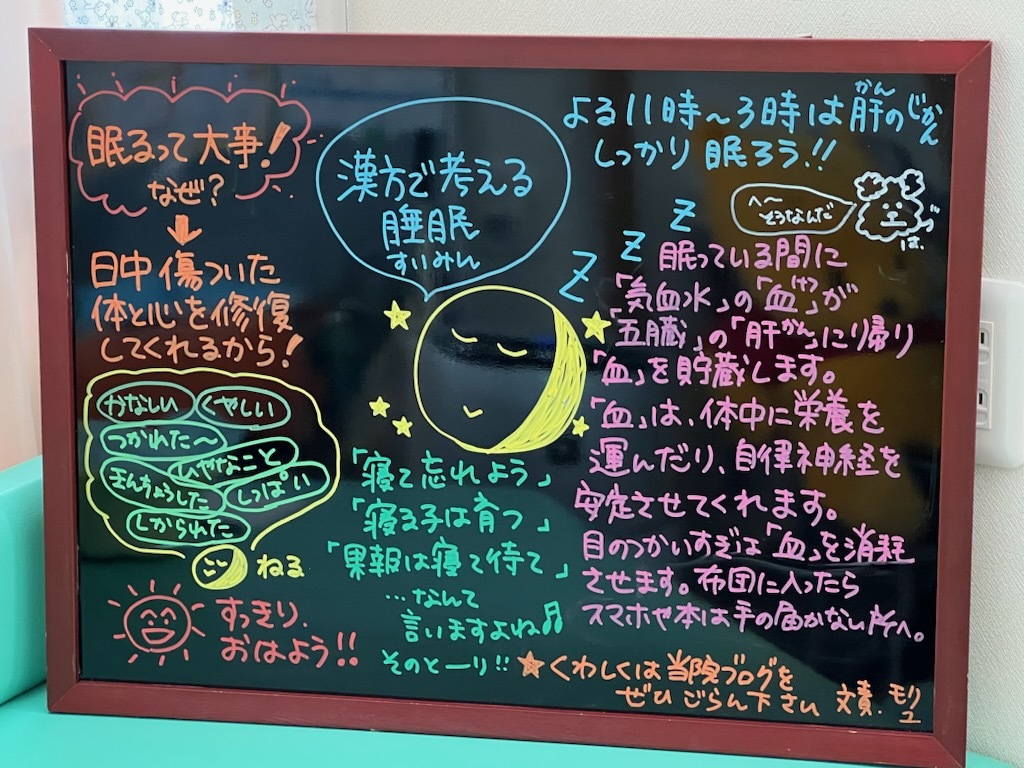 眠るって大事!
なぜ?
日中傷ついた
体と心を修復
してくれるから!
かなしい
くやしい
つかれた〜
いやなこと
きんちょうした
しっぱい
しかられた
ねる
すっきり、
おはよう!!
漢方で考える
睡眠
すいみん
「寝て忘れよう」
「寝る子は育つ」
「果報は寝て待て」
…なんて
言いますよね♫
そのとーり!!
よる11時〜3時は肝のじかん
かん
しっかり眠ろう!!
へ〜
そうなんだ
Z
Z
Z
眠っている間に
「気血水」の「血(けつ)」が
「五臓」の「肝かん」に帰り
「血」を貯蔵します。
「血」は、体中に栄養を
運んだり、自律神経を
安定させてくれます。
目のつかいすぎは「血」を消耗
させます。布団に入ったら
スマホや本は手の届かない所へ。
★くわしくは当院ブログを
ぜひごらん下さい
文責.モリ